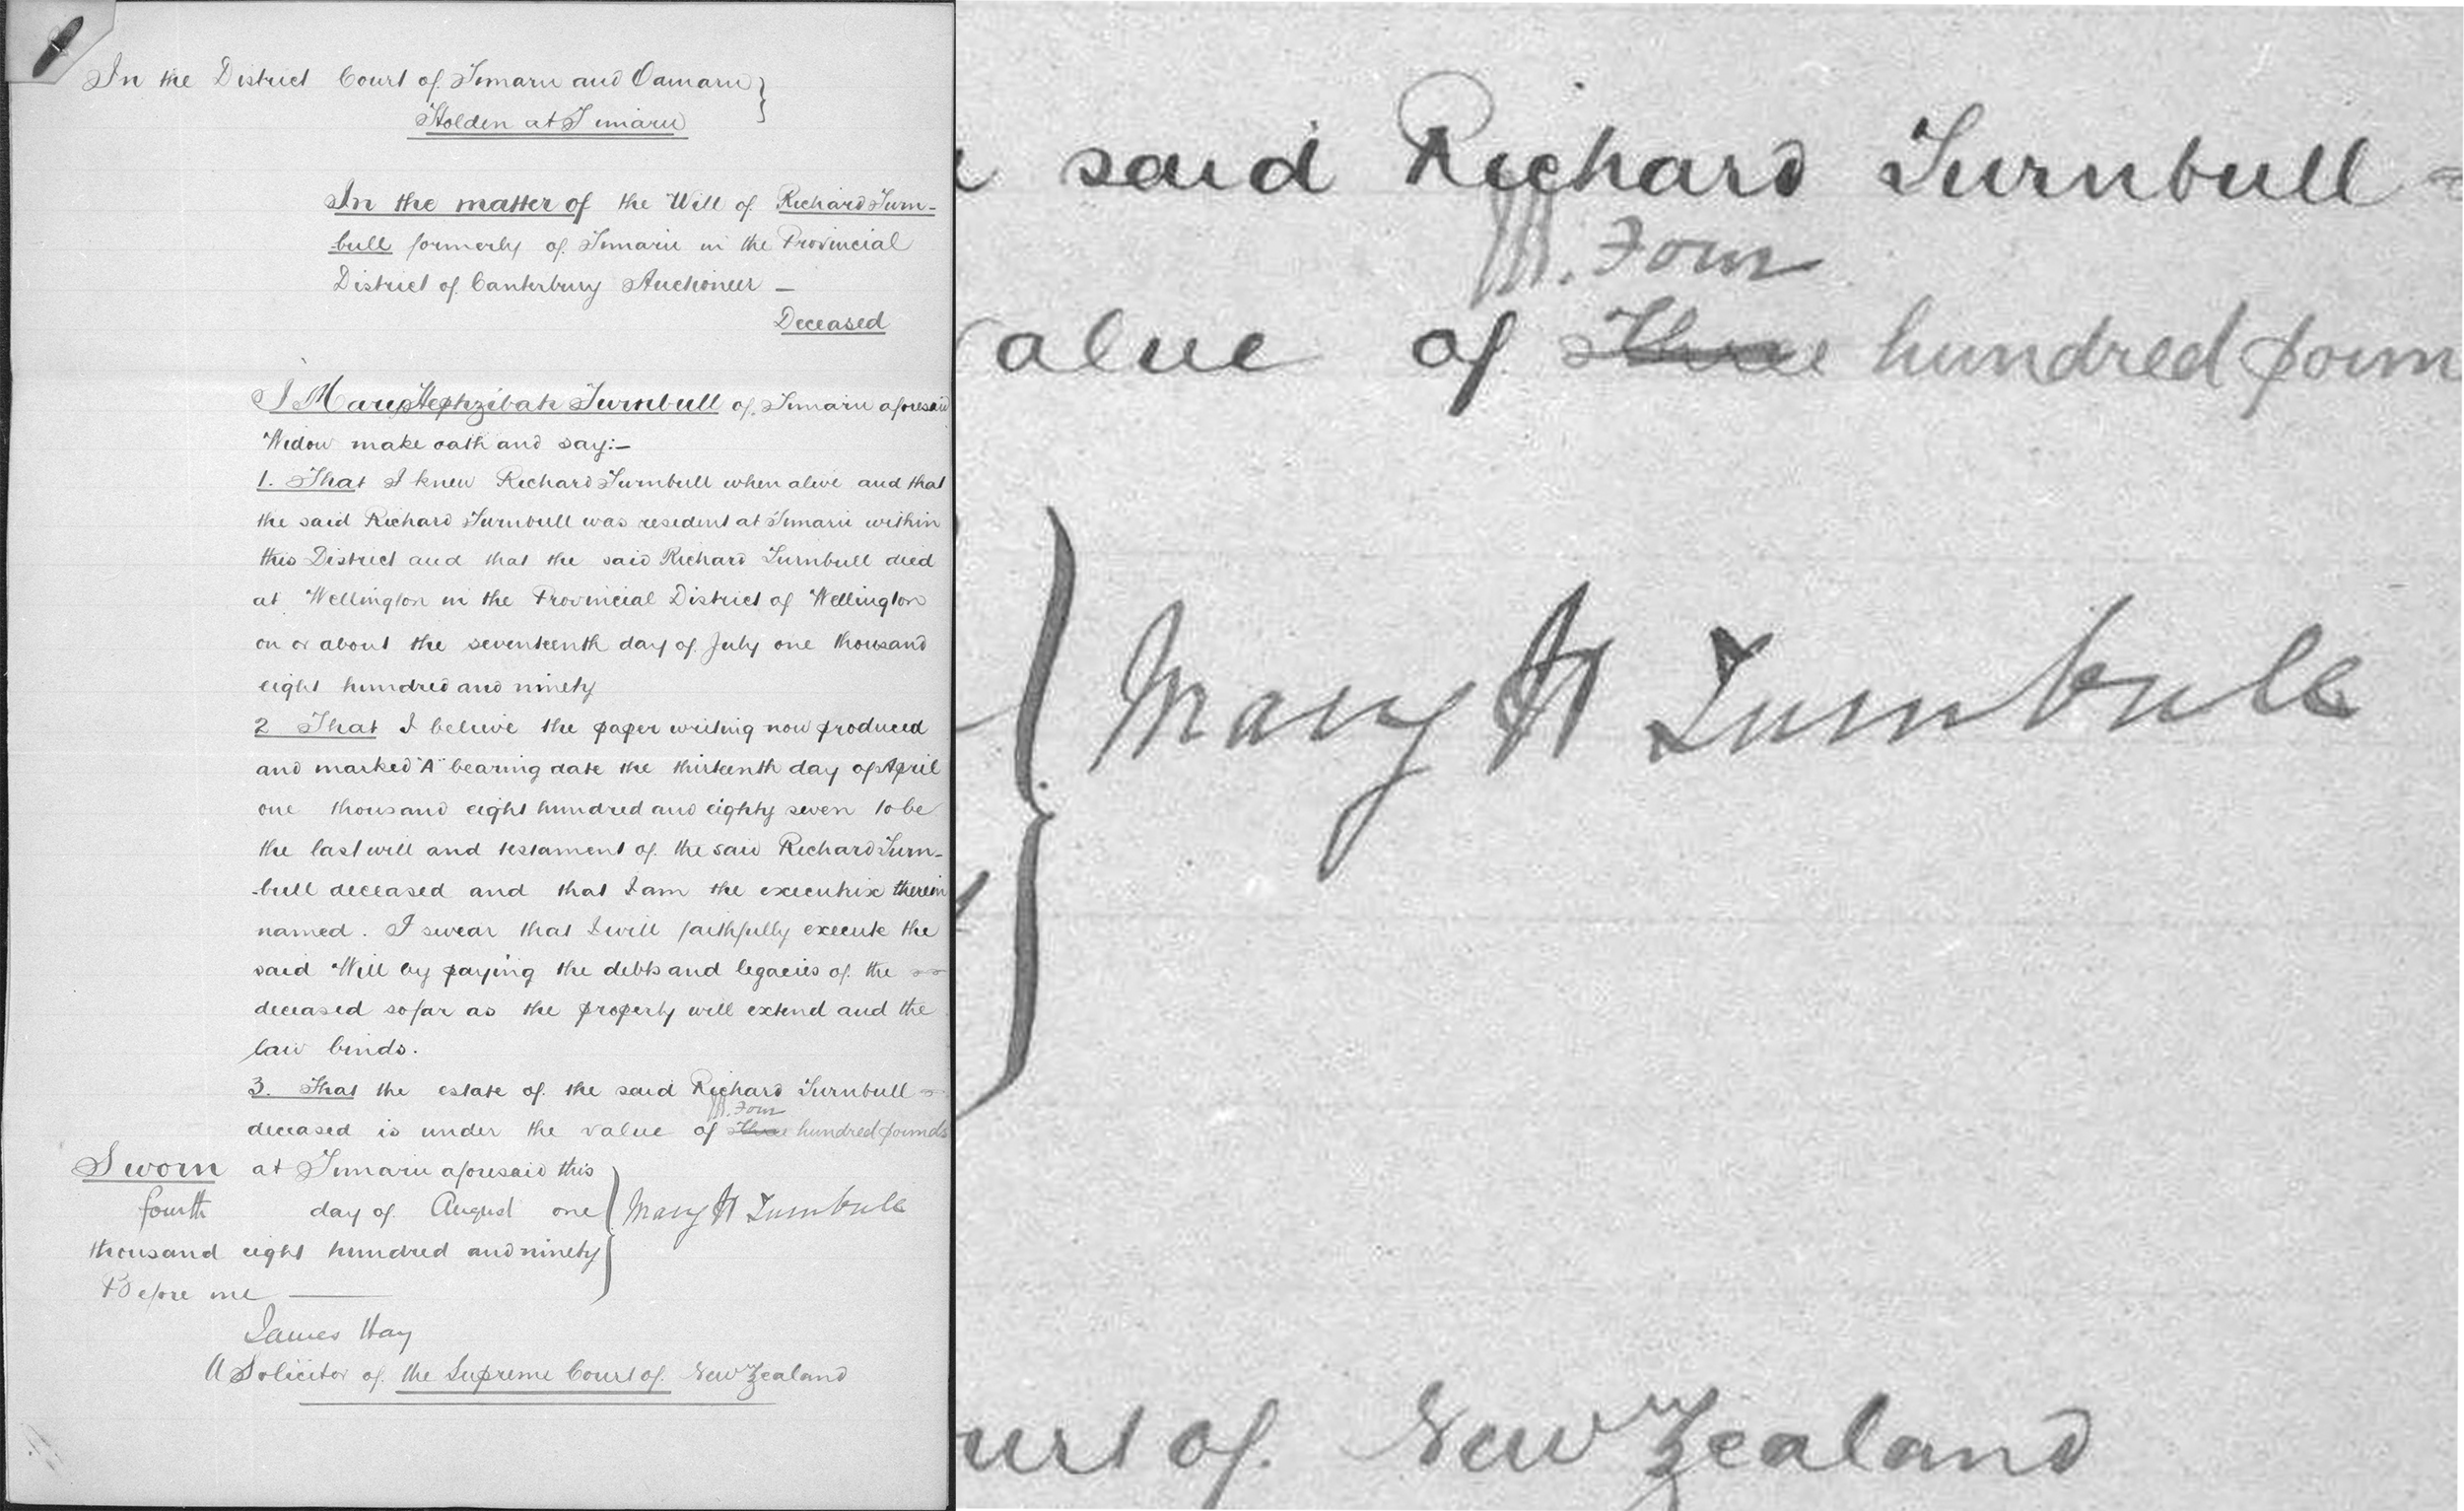 In the District Court of Timaru and Oamaru }
Holden at Timaru
In the matter of the Will of Richard Turn-
bull formerly of Timaru in the Provincial
District of Canterbury Auctioneer —
Deceased
I Mary Hephzibah Turnbull of Timaru aforesaid
Widow make oath and say:—
1. That I knew Richard Turnbull when alive and that
the said Richard Turnbull was resident at Timaru within
this District and that the said Richard Turnbull died
at Wellington in the Provincial District of Wellington
on or about the seventeenth day of July one thousand
eight hundred and ninety
2 That I believe the paper writing now produced
and marked "A" bearing date the thirteenth day of April
one thousand eight hundred and eighty seven to be
the last will and testament of the said Richard Turn-
-bull deceased and that I am the executrix therein
named. I swear that I will faithfully execute the
said Will by paying the debts and legacies of the
deceased so far as the property will extend and the
law binds.
3. That the estate of the said Richard Turnbull
Four
deceased is under the value of Three hundred pounds
Sworn at Timaru aforesaid this
fourth day of August one } Mary H Turnbull
thousand eight hundred and ninety
Before me ——
James Hay
A Solicitor of the Supreme Court of New Zealand
said Richard Turnbull
Four
value of Three hundred poun
} Mary H Turnbull
urt of New Zealand